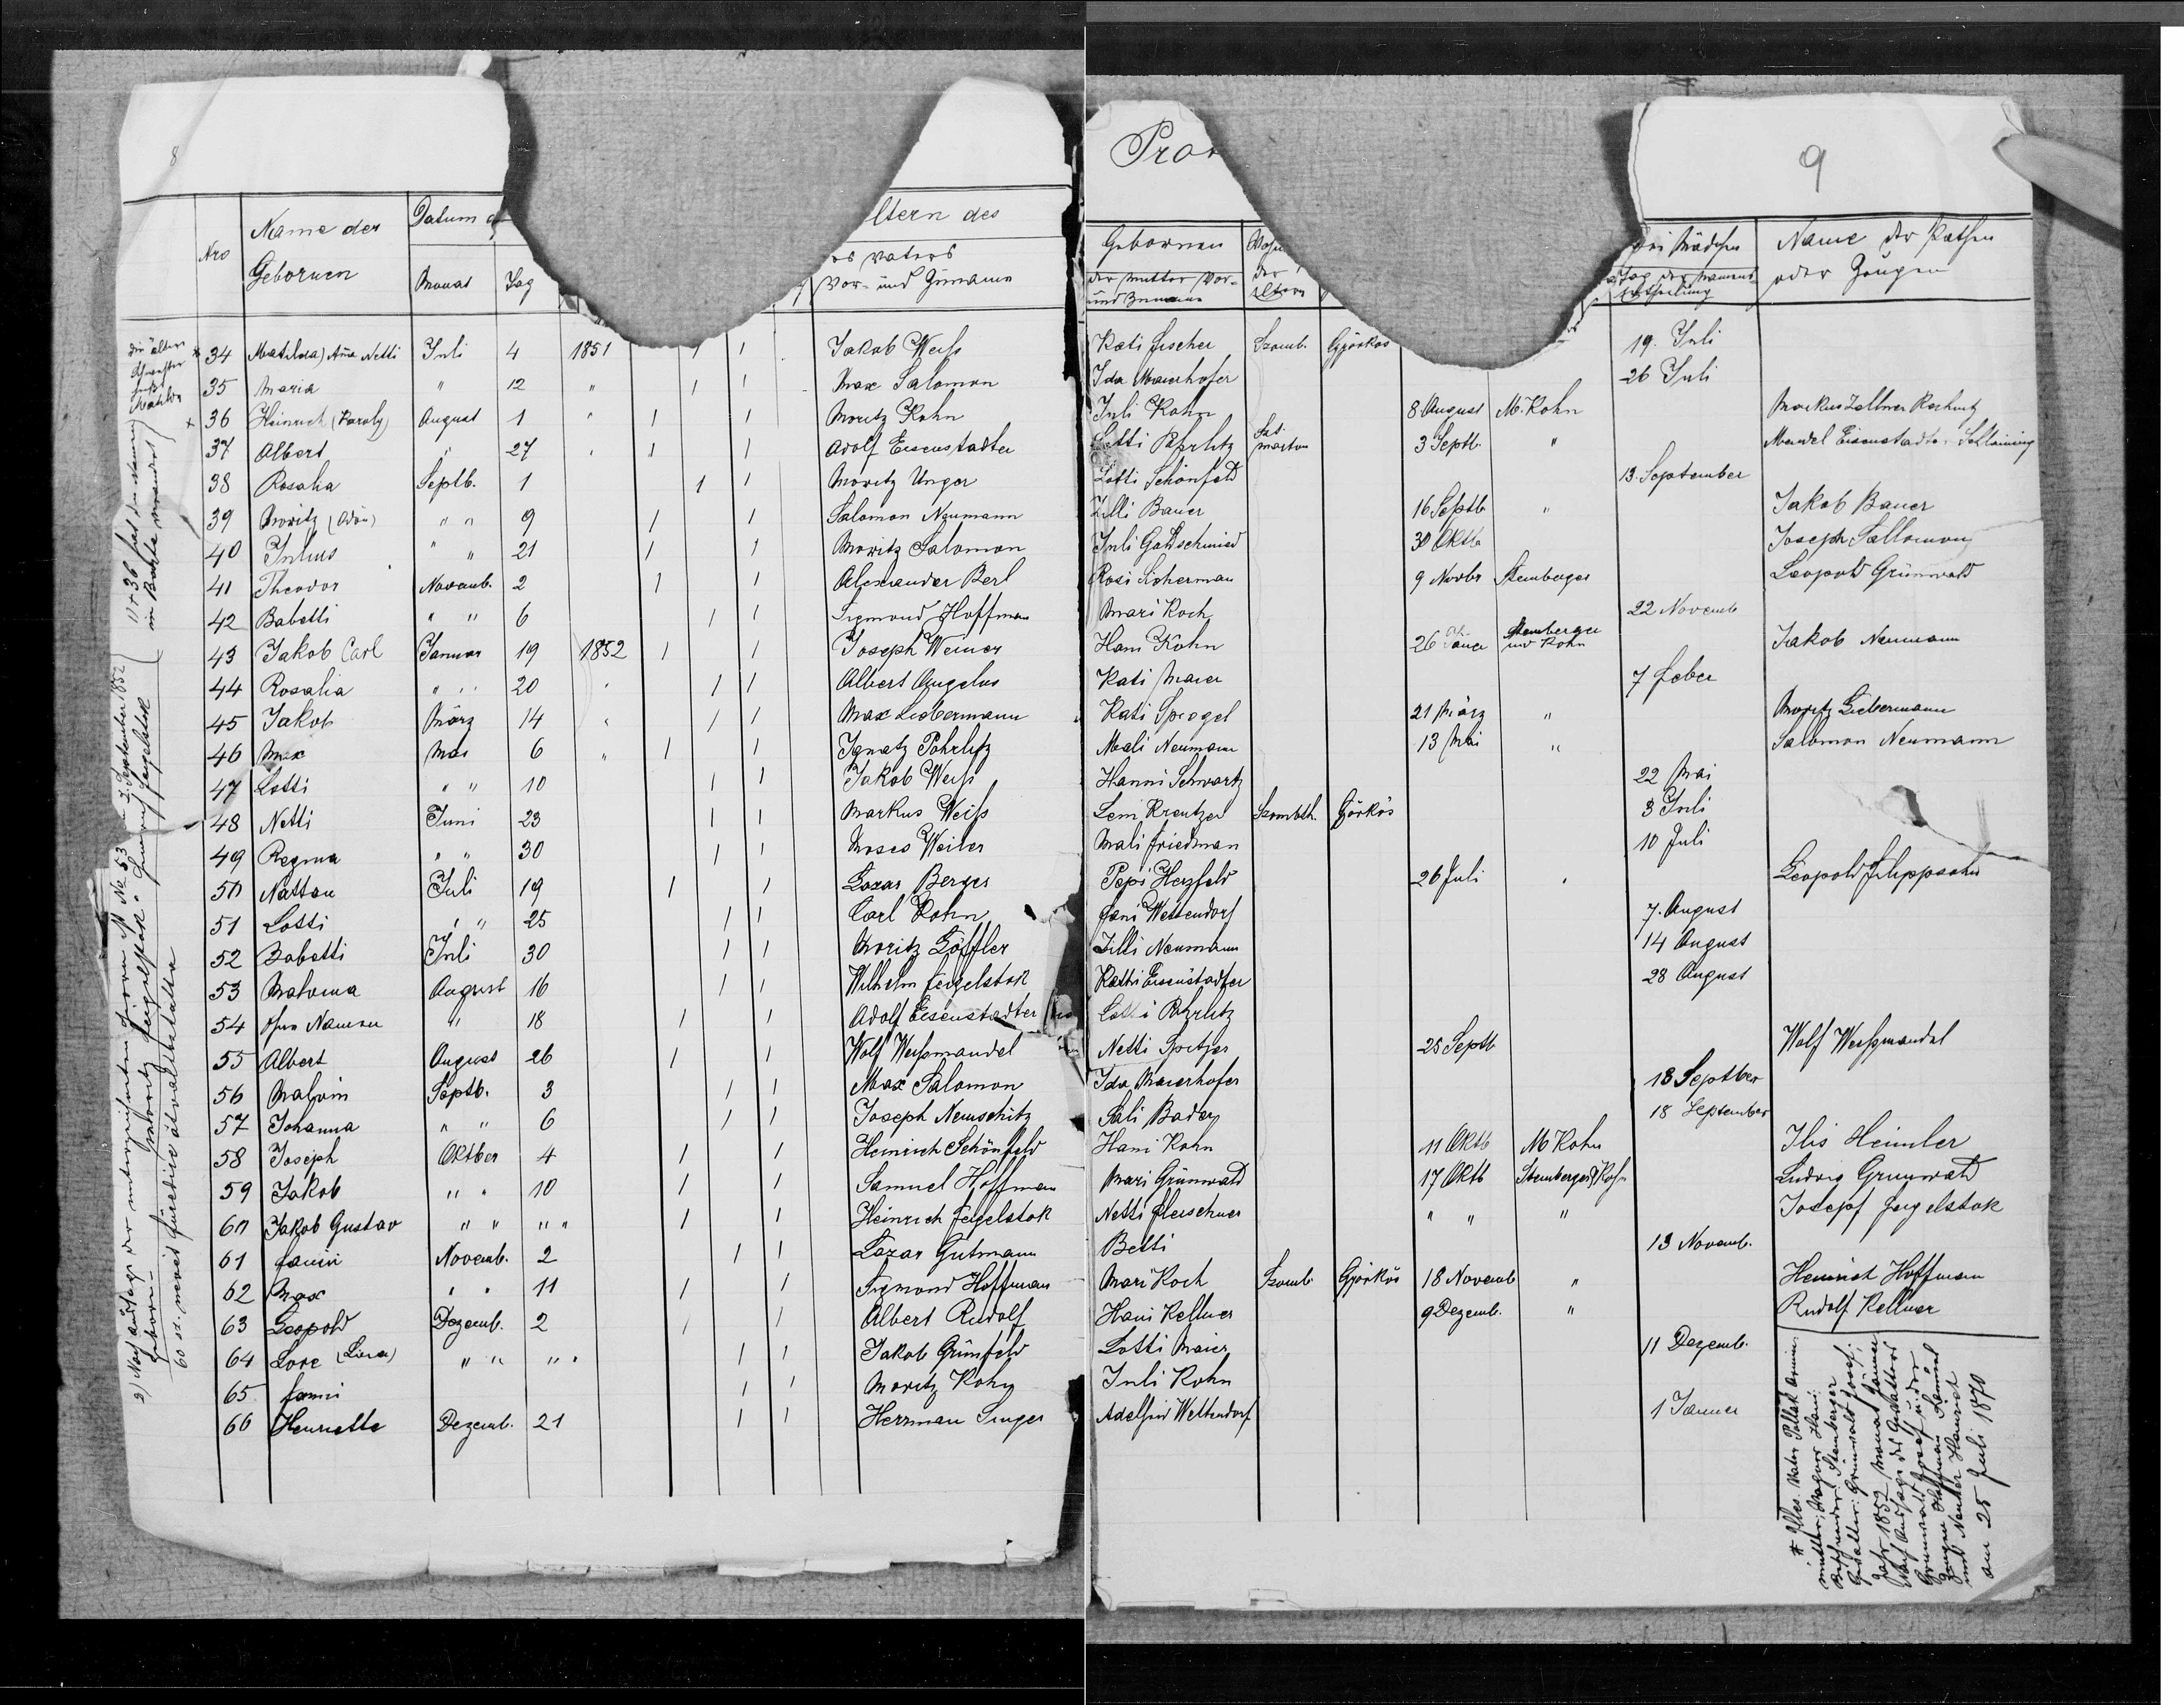 8
Nro
Name der Gebornen
Datum d
Monat
Tag
ltern des
es Vaters
Vor- und Zuname
34 Matilda) Aña Netti Juli 4 1851 1 1 Jakob Weiss
35 Maria " 12 " 1 1 Max Salomon
36 Heinrich (Karoly) August 1 " 1 1 Moritz Kohn
37 Albert " 27 " 1 1 Adolf Eisenstadter
38 Rosalia Septb. 1 1 1 Moritz Unger
39 Moritz (Adon) " " 9 1 1 Salomon Neumann
40 Julius " " 21 1 1 Moritz Salomon
41 Theodor Novemb. 2 1 1 Alexander Berl
42 Babetti " " 6 1 1 Sigmond Hoffman
43 Jakob Carl Januar 19 1852 1 1 Joseph Weiner
44 Rosalia " " 20 " 1 1 Albert Angelus
45 Jakob März 14 " 1 1 Max Liebermann
46 Max Mai 6 " 1 1 Ignatz Pohrlitz
47 Lotti " " 10 1 1 Jakob Weiss
48 Netti Juni 23 1 1 Markus Weiss
49 Regina " " 30 1 1 Moses Weiler
50 Nattan Juli 19 1 1 Lazar Berger
51 Lotti " " 25 1 1 Carl Kohn
52 Babetti Juli 30 1 1 Moritz Löffler
53 Malvina August 16 1 1 Wilhelm Feigelstok
54 Ohne Namen " 18 1 1 Adolf Eisenstadter
55 Albert August 26 1 1 Wolf Weissmandel
56 Malvin Septb. 3 1 1 Max Salomon
57 Johanna " " 6 1 1 Joseph Nemschitz
58 Joseph Oktber 4 1 1 Heinrich Schönfeld
59 Jakob " " 10 1 1 Samuel Hoffman
60 Jakob Gustav " " " " 1 1 Heinrich Feigelstok
61 Fanni Novemb. 2 1 1 Lazar Gutmann
62 Max " " 11 1 1 Sigmond Hoffman
63 Leopold Dezemb. 2 1 1 Albert Rudolf
64 Lore (Liza) " " " " 1 1 Jakob Grünfeld
65 Fanni 1 1 Moritz Kohn
66 Henriette Dezemb. 21 1 1 Herrman Singer
9
Gebornen
der Mutter Vor- und Zuname
der Eltern
bei Mädchen
Tag der Namens
Name der Pathen oder Zeugen
Kati Fischer Szomb. Györkös 19. Juli
Ida Maierhofer 26 Juli
Juli Kohn 8 August M. Kohn Markus Zellner Rechnitz
Lotti Pohrlitz Szt. Marton 3 Septb. " Mandel Eisenstadter Schlaining
Lotti Schönfeld 13. September
Zilli Bauer 16 Septb " Jakob Bauer
Juli Goldschmied 30 Oktb Joseph Sallomon
Rosi Licherman 9 Novbr Stemberger Leopold Grünwald
Mari Koch 22 Novemb
Hani Kohn 26 Jäner Stemberger und Kohn Jakob Neumann
Kati Maier 7 Feber
Kati Spiegel 21 März " Moritz Liebermann
Mali Neumann 13 Mai " Salomon Neumann
Hanni Schwartz 22 Mai
Leni Kreutzer Szombth. Györkös 3 Juli
Mali Friedman 10 Juli
Pepi Herzfeld 26 Juli " Leopold Filippsohn
Fani Weltendorf 7. August
Zilli Neumann 14 August
Katti Eisenstadter 28 August
Lotti Pohrlitz
Netti Spitzer 25 Septb Wolf Weissmandel
Ida Maierhofer 18 Septber
Sali Bader 18 September
Hani Kohn 11 Oktb M Kohn Ilis Heimler
Mari Grünwald 17 Oktb Stemberger & Kohn Ludvig Grünwald
Netti Fleischner " " " Josepf Feigelstok
Betti 13 Novemb.
Mari Koch Szomb Györkös 18 Novemb " Heinrich Hoffmann
Hani Kellner 9 Dezemb. " Rudolf Kellner
Lotti Maier 11 Dezemb.
Juli Kohn
Adelheid Weltendorf 1 Jänner
* Illes. Vater Pollak Armin
Mutter: Magur Hani
Beschneider Stemberger
Gevatter: Grünwald Josef,
Jahr 1852 Monat Jänner
Nach Aussage des Gevatters
Grünwald Josef u der
Zeugen Hoffman Samuel
und Neuler Heinrich
am 25 Juli 1870